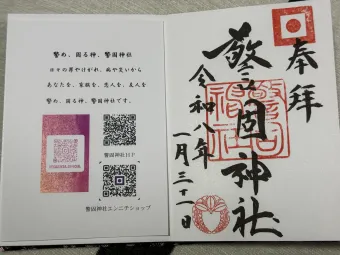 警め、固る神、警固神社
日々の罪やけがれ、病や災いから
あなたを、家族を、恋人を、友人を
警め、固る神、警固神社です。
警固神社HP
警固神社エンニチショップ
奉拝
警固神社
令和八年
一月三十一日